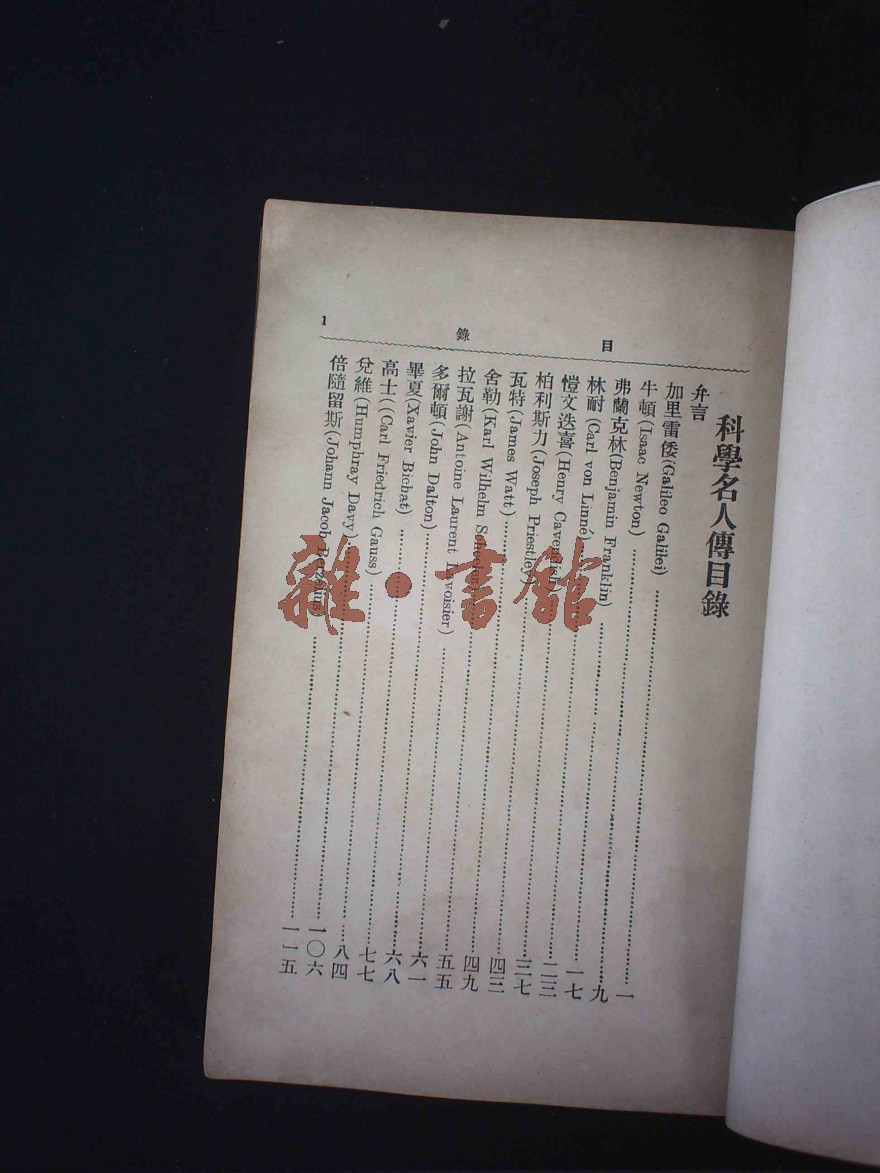 目 錄 1
科學名人傳目錄
弁言
加里雷倭(Galileo Galilei)……一
牛頓(Isaac Newton)……九
弗蘭克林(Benjamin Franklin)……一七
林耐(Carl von Linné)……二三
愷文迭喜(Henry Cavendish)……三七
柏利斯力(Joseph Priestley)……四三
瓦特(James Watt)……四九
舍勒(Karl Wilhelm Scheele)……五五
拉瓦謝(Antoine Laurent Lavoisier)……六一
多爾頓(John Dalton)……六八
畢夏(Xavier Bichat)……七七
高士((Carl Friedrich Gauss)……八四
兌維(Humphray Davy)……一〇六
倍隨留斯(Johann Jacob Berzelius)……一一五
雜·書館